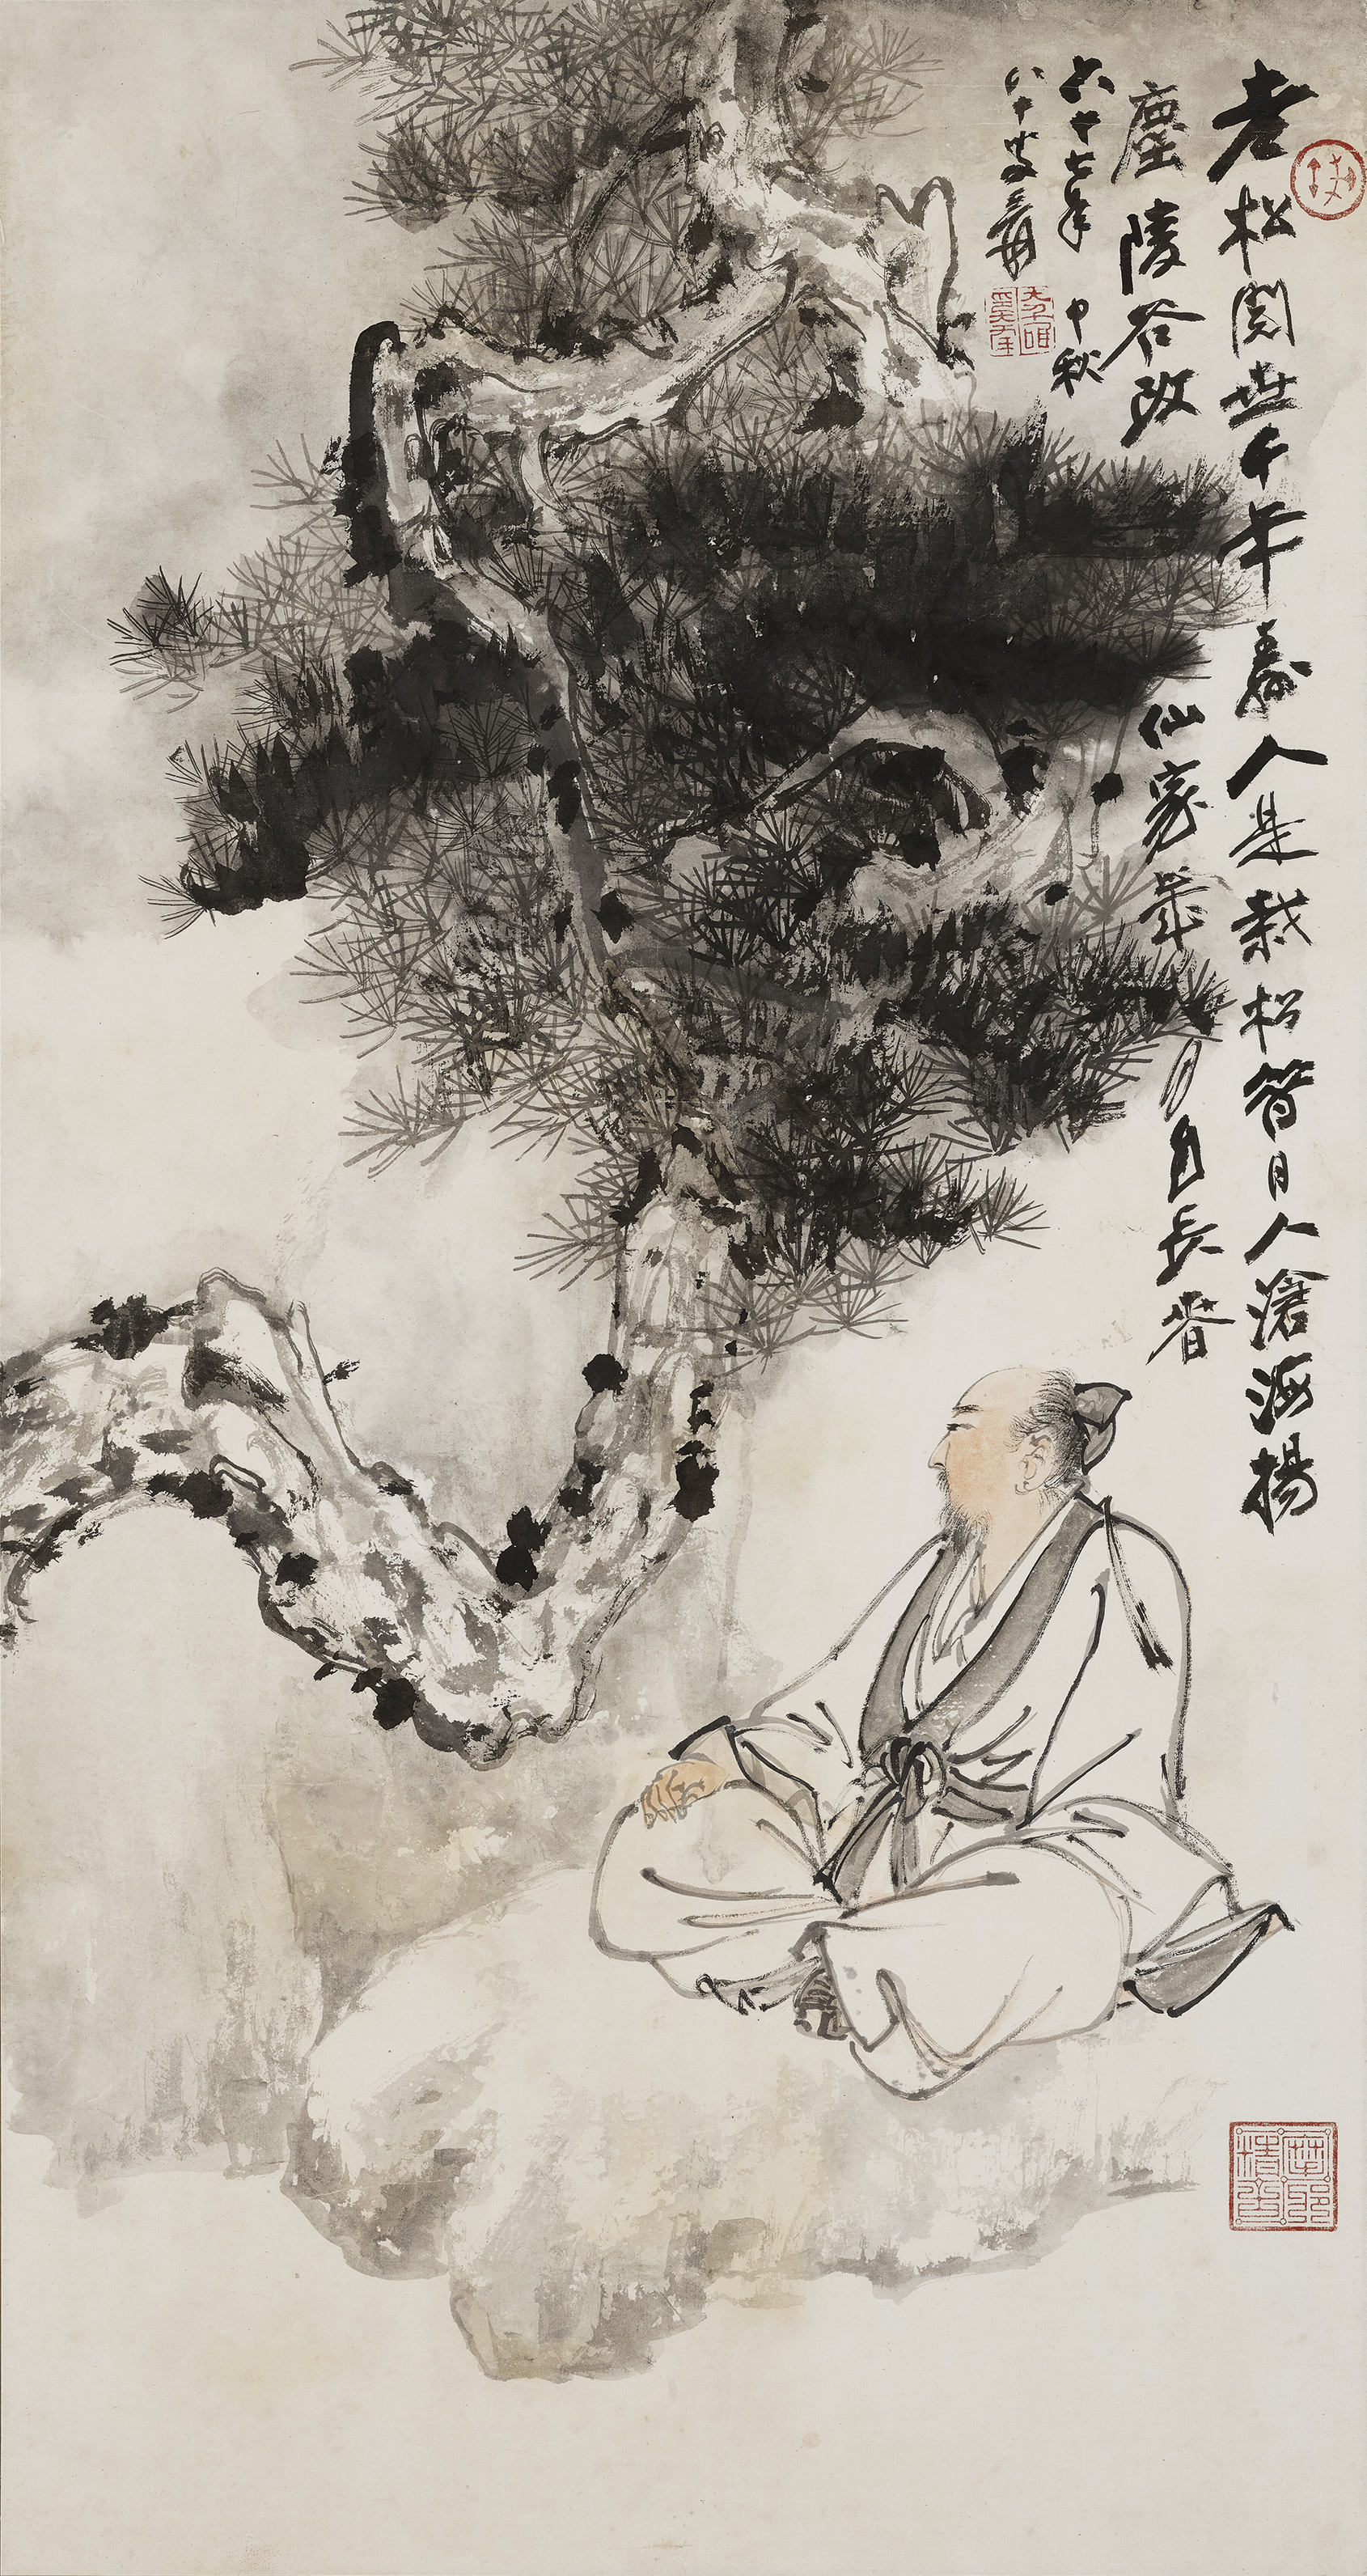 老松閱世千年壽人是栽松昔日人滄海揚
塵陵谷改仙家歲月自長春
六十七年中秋
八十叟爰